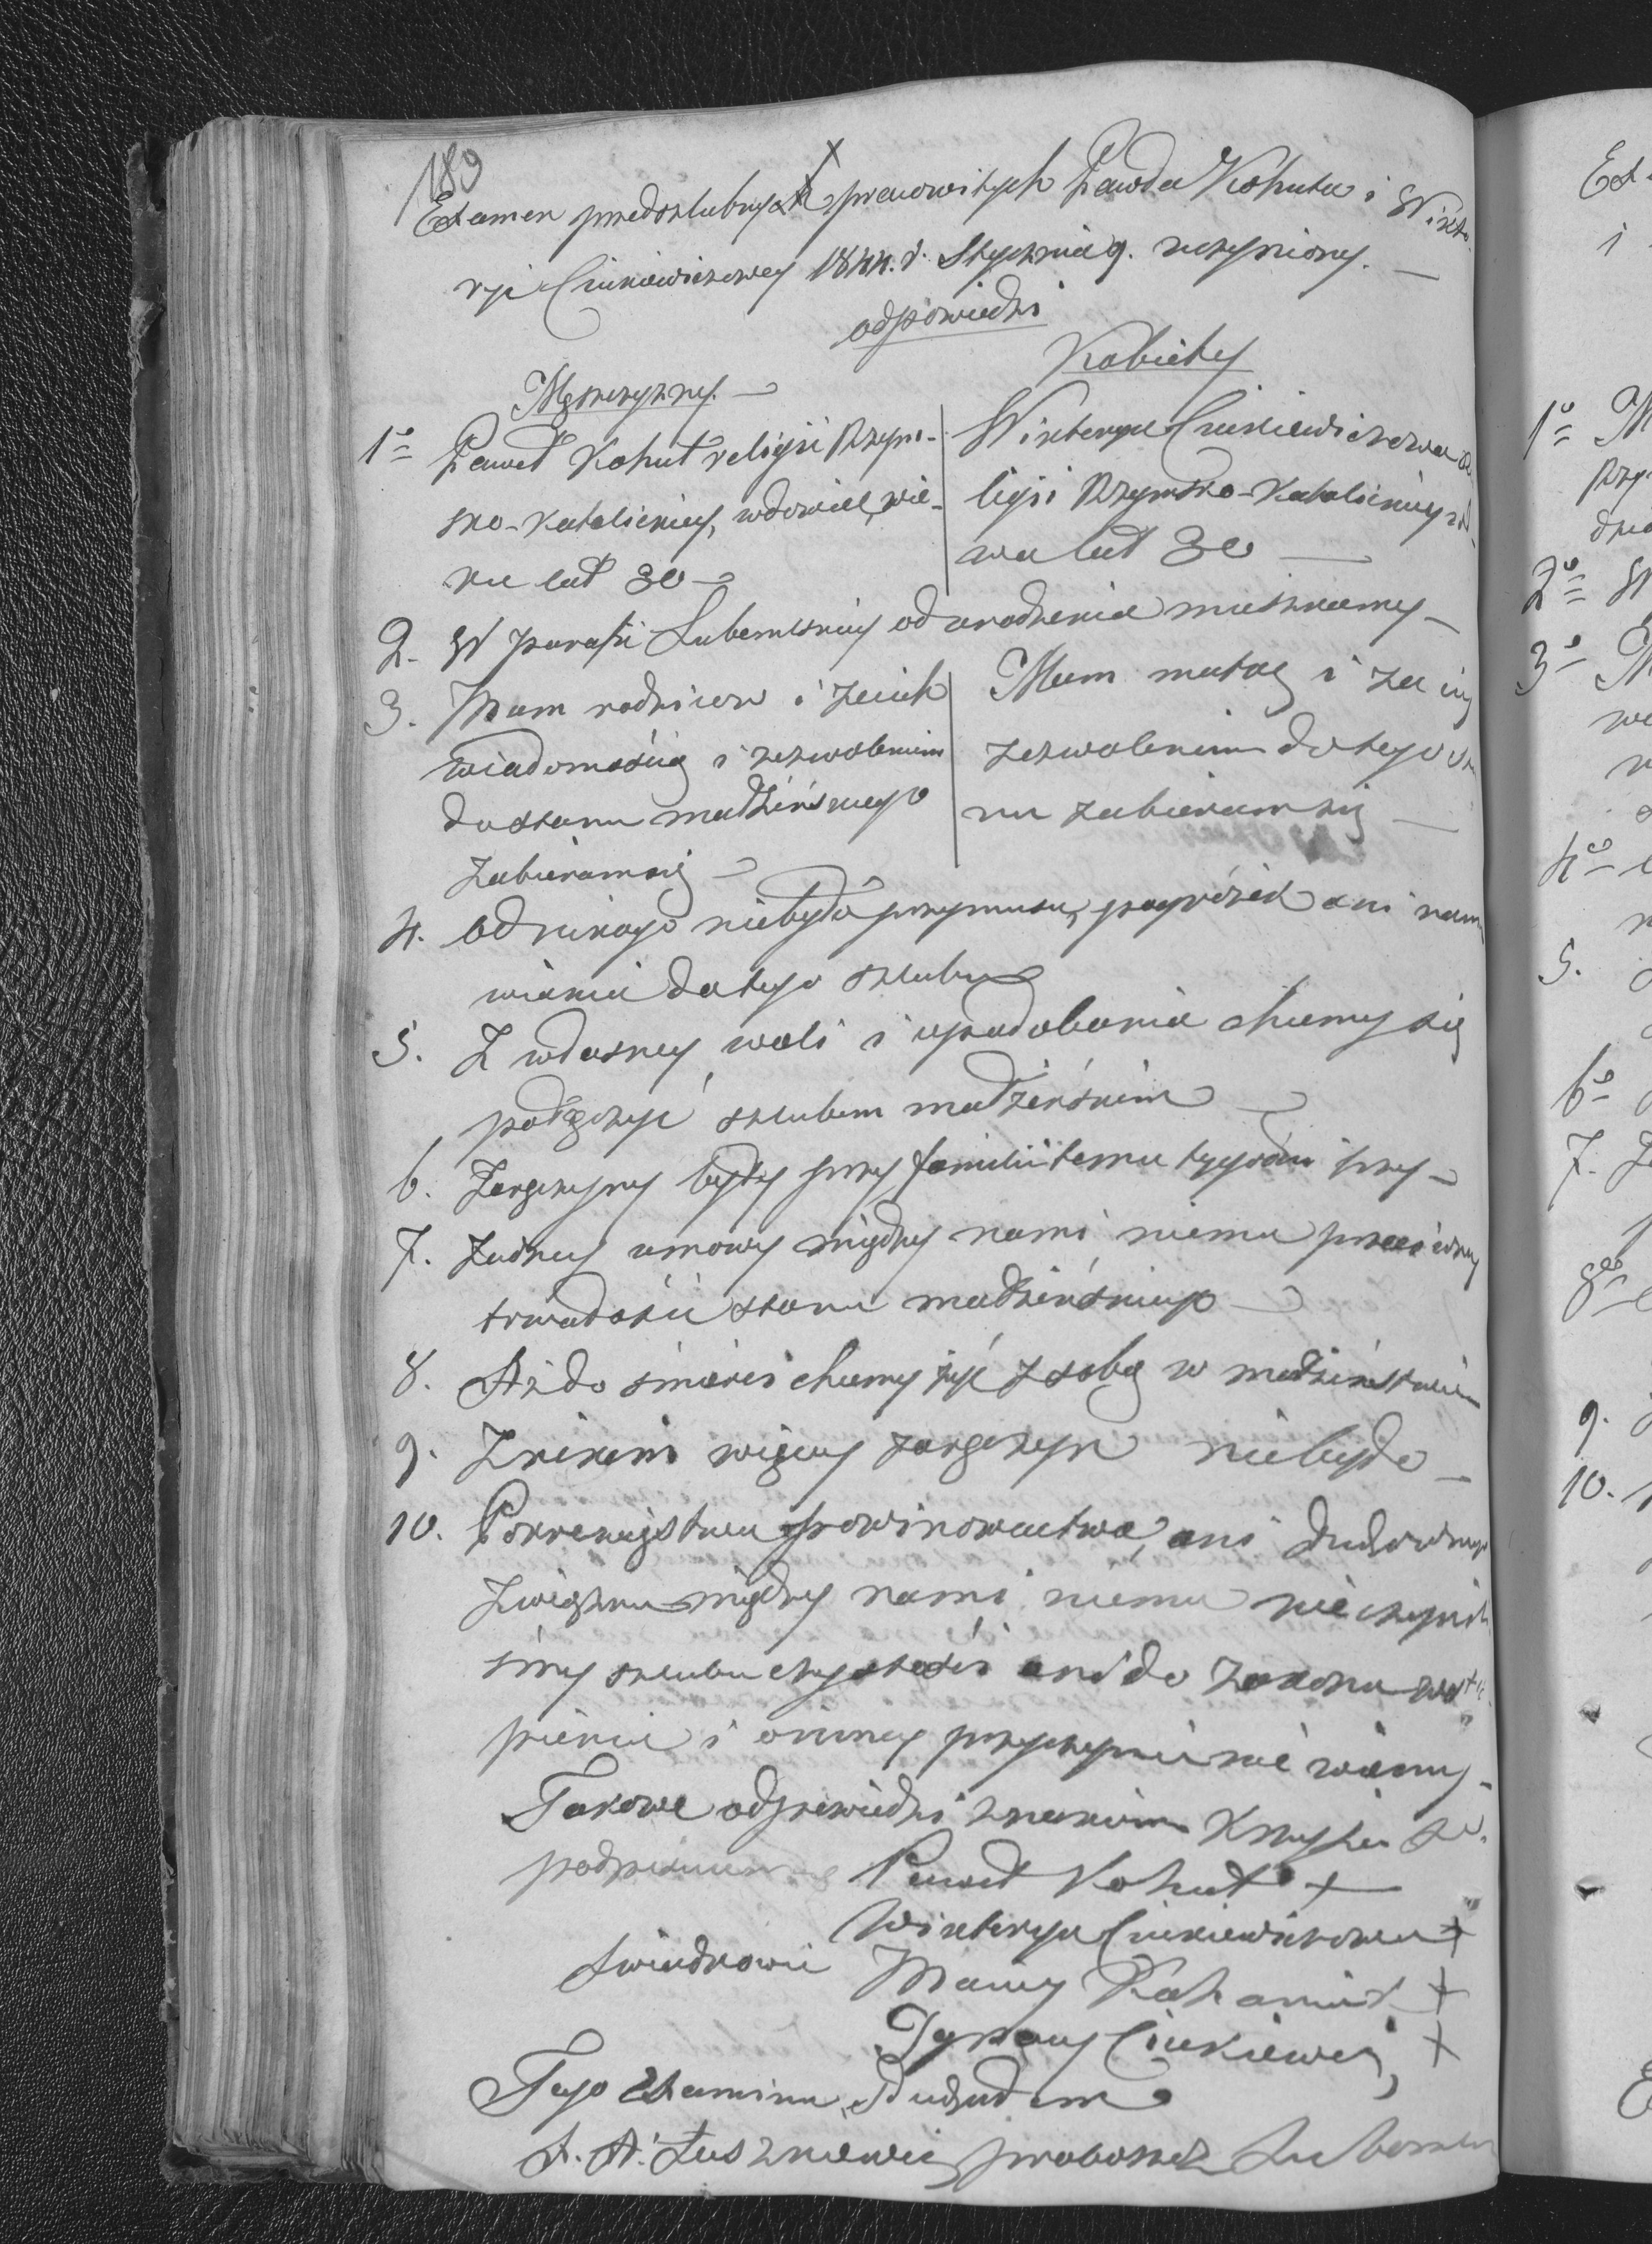 189
Examen przedszlubny pracowitych Pawła Kohuta i Wikto-
ryi Ciukiewiczowey 1844. r. Stycznia 9. uczyniony. —
odpowiedzi
Męszczyzny. — Kobiety
1º Paweł Kohut religii Rzym-
sko-Katolickiey, wdowiec, wie-
ku lat 30 —
Wiktorya Ciukiewiczowa re
ligii Rzymsko-Katolickiey wdo
wa lat 30 —
2. W parafii Lubomlskiey od urodzenia mieszkamy —
3. Mam rodziców i za ich
wiadomością i zezwoleniem
do stanu małżeńskiego
zabieram się —
Mam matkę i za iey
zezwoleniem do tego sta
nu zabieram się —
4. Od nikogo niebyło przymusu, pogrózek ani namó
wienia do tego szlubu
5. Z własney woli i upodobania chcemy się
połączyć szlubem małżeńskim —
6. Zaręczyny były przy familii temu tygodni trzy —
7. Żadney umowy między nami niema przeciwney
trwałości stanu małżeńskiego —
8. Aż do śmierci chcemy żyć z sobą w małżeństwie
9. Z nikim więcey zaręczyn niebyło —
10. Pokrewięstwa powinowactwa, ani duchownego
związku między nami niema nie czynili
śmy szlubu czystości ani do zakonu wstą
pienia i o inney przyczynie nie wiemy —
Takowe odpowiedzi znakiem Krzyża S.
podpisuiemy Paweł Kohut +
Wiktorya Ciukiewiczowa +
Świadkowie Maciey +
Ignacy Ciukiewicz +
Tego Examinu Słuchałem
proboszcz